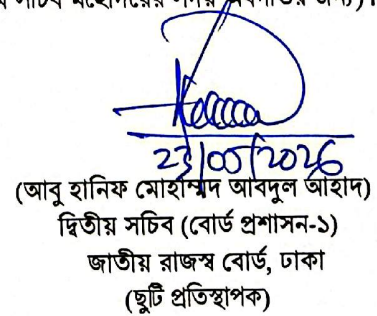 সচিব মহোদয়ের সদয় অবগতির জন্য)।
23/05/2026
(আবু হানিফ মোহাম্মদ আবদুল আহাদ)
দ্বিতীয় সচিব (বোর্ড প্রশাসন-১)
জাতীয় রাজস্ব বোর্ড, ঢাকা
(ছুটি প্রতিস্থাপক)